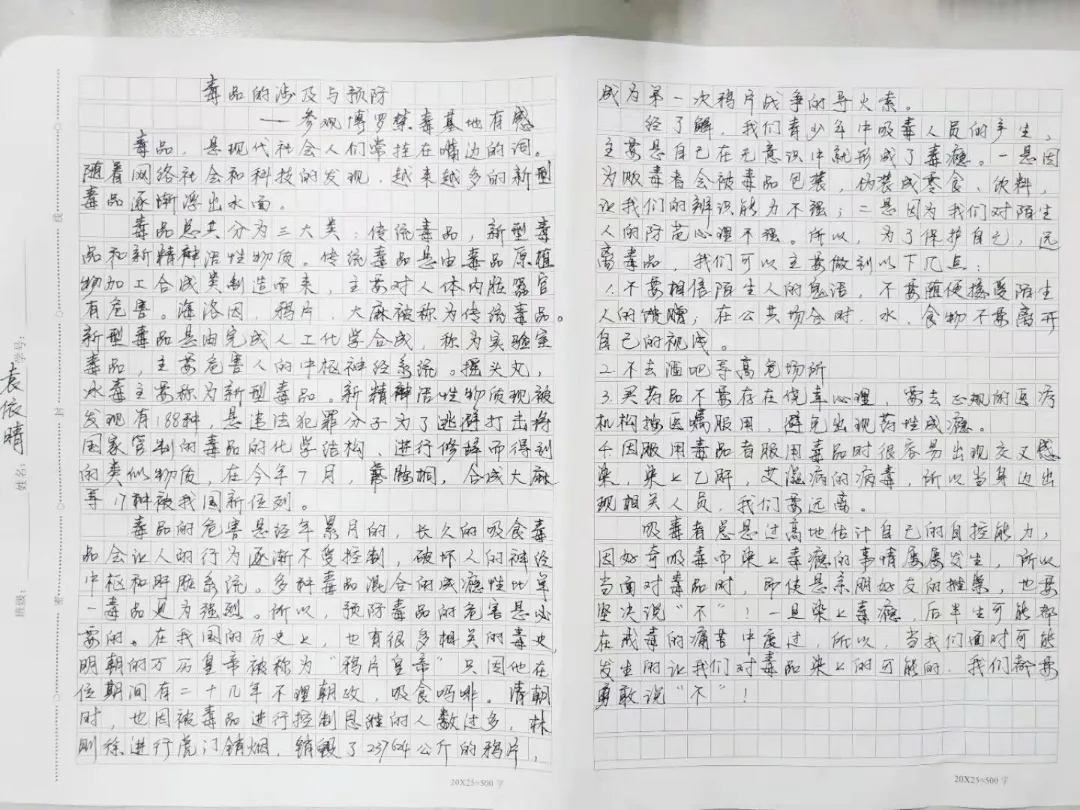 毒品的涉及与预防
——参观博罗禁毒基地有感
毒品，是现代社会人们常挂在嘴边的词。
随着网络社会和科技的发现，越来越多的新型
毒品逐渐浮出水面。
毒品总共分为三大类：传统毒品，新型毒
品和新精神活性物质。传统毒品是由毒品原植
物加工合成类制造而来，主要对人体内脏器官
有危害。海洛因，鸦片，大麻被称为传统毒品。
新型毒品是由完成人工化学合成，称为实验室
毒品，主要危害人的中枢神经系统。摇头丸，
冰毒主要称为新型毒品。新精神活性物质现被
发现有188种，是违法犯罪分子为了逃避打击将
国家管制的毒品的化学结构，进行修释而得到
的类似物质，在今年7月，胺酮，合成大麻
等17种被我国新位列。
毒品的危害是经年累月的，长久的吸食毒
品会让人的行为逐渐不受控制，破坏人的神经
中枢和肝脏系统。多种毒品混合的成瘾性比单
一毒品更为强烈。所以，预防毒品的危害是必
要的。在我国的历史上，也有很多相关的毒史，
明朝的万历皇帝被称为“鸦片皇帝”只因他在
位期间有二十几年不理朝政，吸食吗啡。清朝
时，也因被毒品进行控制思维的人数过多，林
则徐进行虎门销烟，销毁了23764公斤的鸦片，
成为第一次鸦片战争的导火索。
经了解，我们青少年中吸毒人员的产生，
主要是自己在无意识中就形成了毒瘾。一是因
为贩毒者会被毒品包装，伪装成零食、饮料，
让我们的辨识能力不强；二是因为我们对陌生
人的防范心理不强。所以，为了保护自己，远
离毒品，我们可以主要做到以下几点：
1.不要相信陌生人的鬼话，不要随便接受陌生
人的馈赠，在公共场合时，水，食物不要离开
自己的视线。
2.不去酒吧等高危场所
3.买药品不要存在侥幸心理，要去正规的医疗
机构按医嘱服用，避免出现药性成瘾。
4.因服用毒品者服用毒品时很容易出现交叉感
染，染上乙肝，艾滋病的病毒，所以当身边出
现相关人员，我们要远离。
吸毒者总是过高地估计自己的自控能力，
因好奇吸毒而染上毒瘾的事情屡屡发生，所以
当面对毒品时，即使是亲朋好友的推禀，也要
坚决说“不”！一旦染上毒瘾，后半生可能都
在戒毒的痛苦中度过，所以，当我们面对可能
发生的让我们对毒品染上的可能的，我们都要
勇敢说“不”！
班级：
姓名：袁依晴
学号：
密
封
线
20X25=500字
20X25=500字